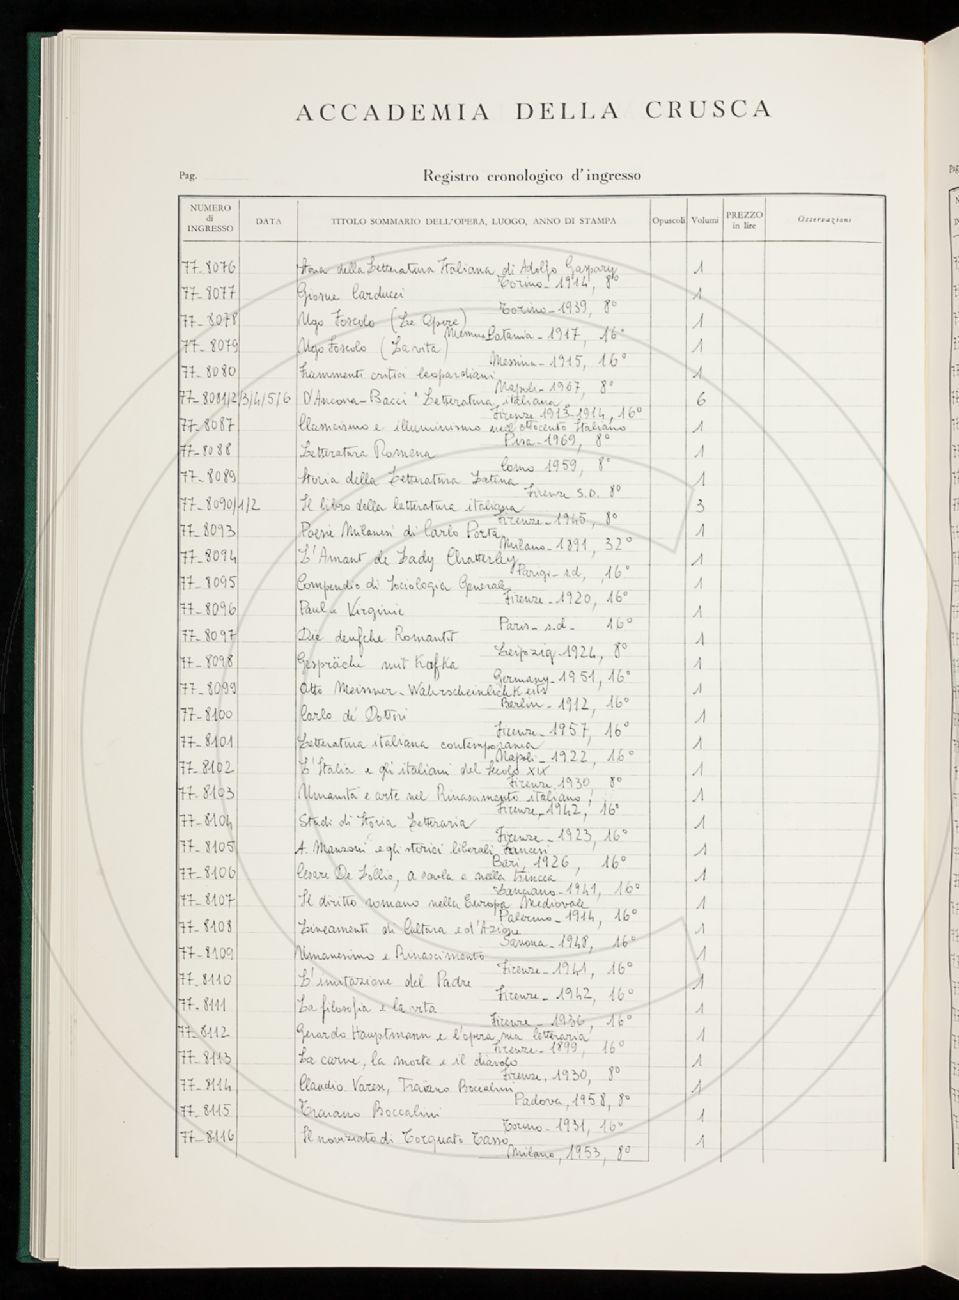 ACCADEMIA DELLA CRUSCA
Pag.
Registro cronologico d'ingresso
NUMERO di INGRESSO DATA TITOLO SOMMARIO DELL'OPERA, LUOGO, ANNO DI STAMPA Opuscoli Volumi PREZZO in lire Osservazioni
77-8076 Storia della Letteratura Italiana di Adolfo Gaspary 1
Torino - 1914, 8°
77-8077 Giosue Carducci 1
Torino - 1939, 8°
77-8078 Ugo Foscolo (Le Opere) 1
Catania - 1917, 16°
77-8079 Ugo Foscolo (La vita) 1
Messina - 1915, 16°
77-8080 Frammenti critici leopardiani 1
Napoli - 1967, 8°
77-8081/2/3/4/5/6 D'Ancona-Bacci "Letteratura italiana" 6
Firenze 1913-1914, 16°
77-8087 Classicismo e illuminismo nell'ottocento Italiano 1
Pisa - 1969, 8°
77-8088 Letteratura Romena 1
Como 1959, 8°
77-8089 Storia della Letteratura Latina 1
Firenze S.D. 8°
77-8090/1/2 Il libro della letteratura italiana 3
Firenze - 1945, 8°
77-8093 Poesie Milanesi di Carlo Porta 1
Milano - 1891, 32°
77-8094 L'Amant de Lady Chatterley 1
Parigi - s.d., 16°
77-8095 Compendio di Sociologia Generale 1
Firenze - 1920, 16°
77-8096 Paul e Virginie 1
Paris - s.d. - 16°
77-8097 Die deutsche Romantik 1
Leipzig - 1924, 8°
77-8098 Gespräche mit Kafka 1
Germany - 1951, 16°
77-8099 Otto Meissner - Wahrscheinlichkeits 1
Berlin - 1912, 16°
77-8100 Carlo de' Dottori 1
Firenze - 1957, 16°
77-8101 Letteratura italiana contemporanea 1
Napoli - 1922, 16°
77-8102 L'Italia e gli italiani del Secolo XIX 1
Firenze 1930, 8°
77-8103 Umanità e arte nel Rinascimento italiano 1
Firenze, 1942, 16°
77-8104 Studi di Storia Letteraria 1
Firenze - 1923, 16°
77-8105 A. Manzoni e gli storici liberali francesi 1
Bari, 1926, 16°
77-8106 Cesare De Lollis, a scuola e nella trincea 1
Lanciano - 1941, 16°
77-8107 Il diritto romano nella Europa Medioevale 1
Palermo - 1914, 16°
77-8108 Lineamenti di Cultura e d'Azione 1
Savona - 1948, 16°
77-8109 Umanesimo e Rinascimento 1
Firenze - 1941, 16°
77-8110 L'imitazione del Padre 1
Firenze - 1942, 16°
77-8111 La filosofia e la vita 1
Firenze - 1936, 16°
77-8112 Gerardo Hauptmann e l'opera sua letteraria 1
Firenze - 1899, 16°
77-8113 La carne, la morte e il diavolo 1
Firenze, 1930, 8°
77-8114 Claudio Varese, Traiano Boccalini 1
Padova, 1958, 8°
77-8115 Traiano Boccalini 1
Torino - 1931, 16°
77-8116 Il noviziato di Torquato Tasso 1
Milano, 1953, 8°